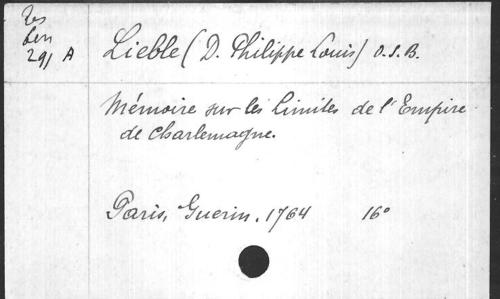 Res
Ben
291 A
Lieble (D. Philippe Louis) O.S.B.
Mémoire sur les limites de l'Empire
de Charlemagne.
Paris, Guerin, 1764 16°